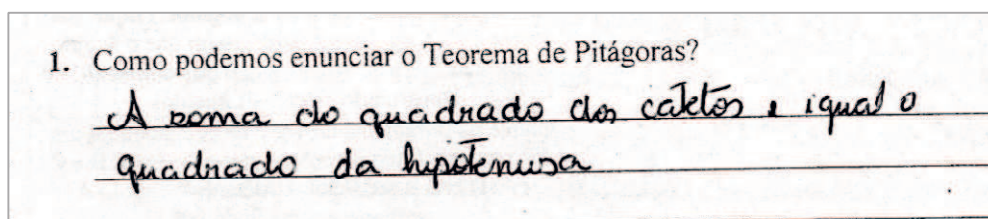 1. Como podemos enunciar o Teorema de Pitágoras?
A soma do quadrado dos catetos e igual o
quadrado da hipotenusa